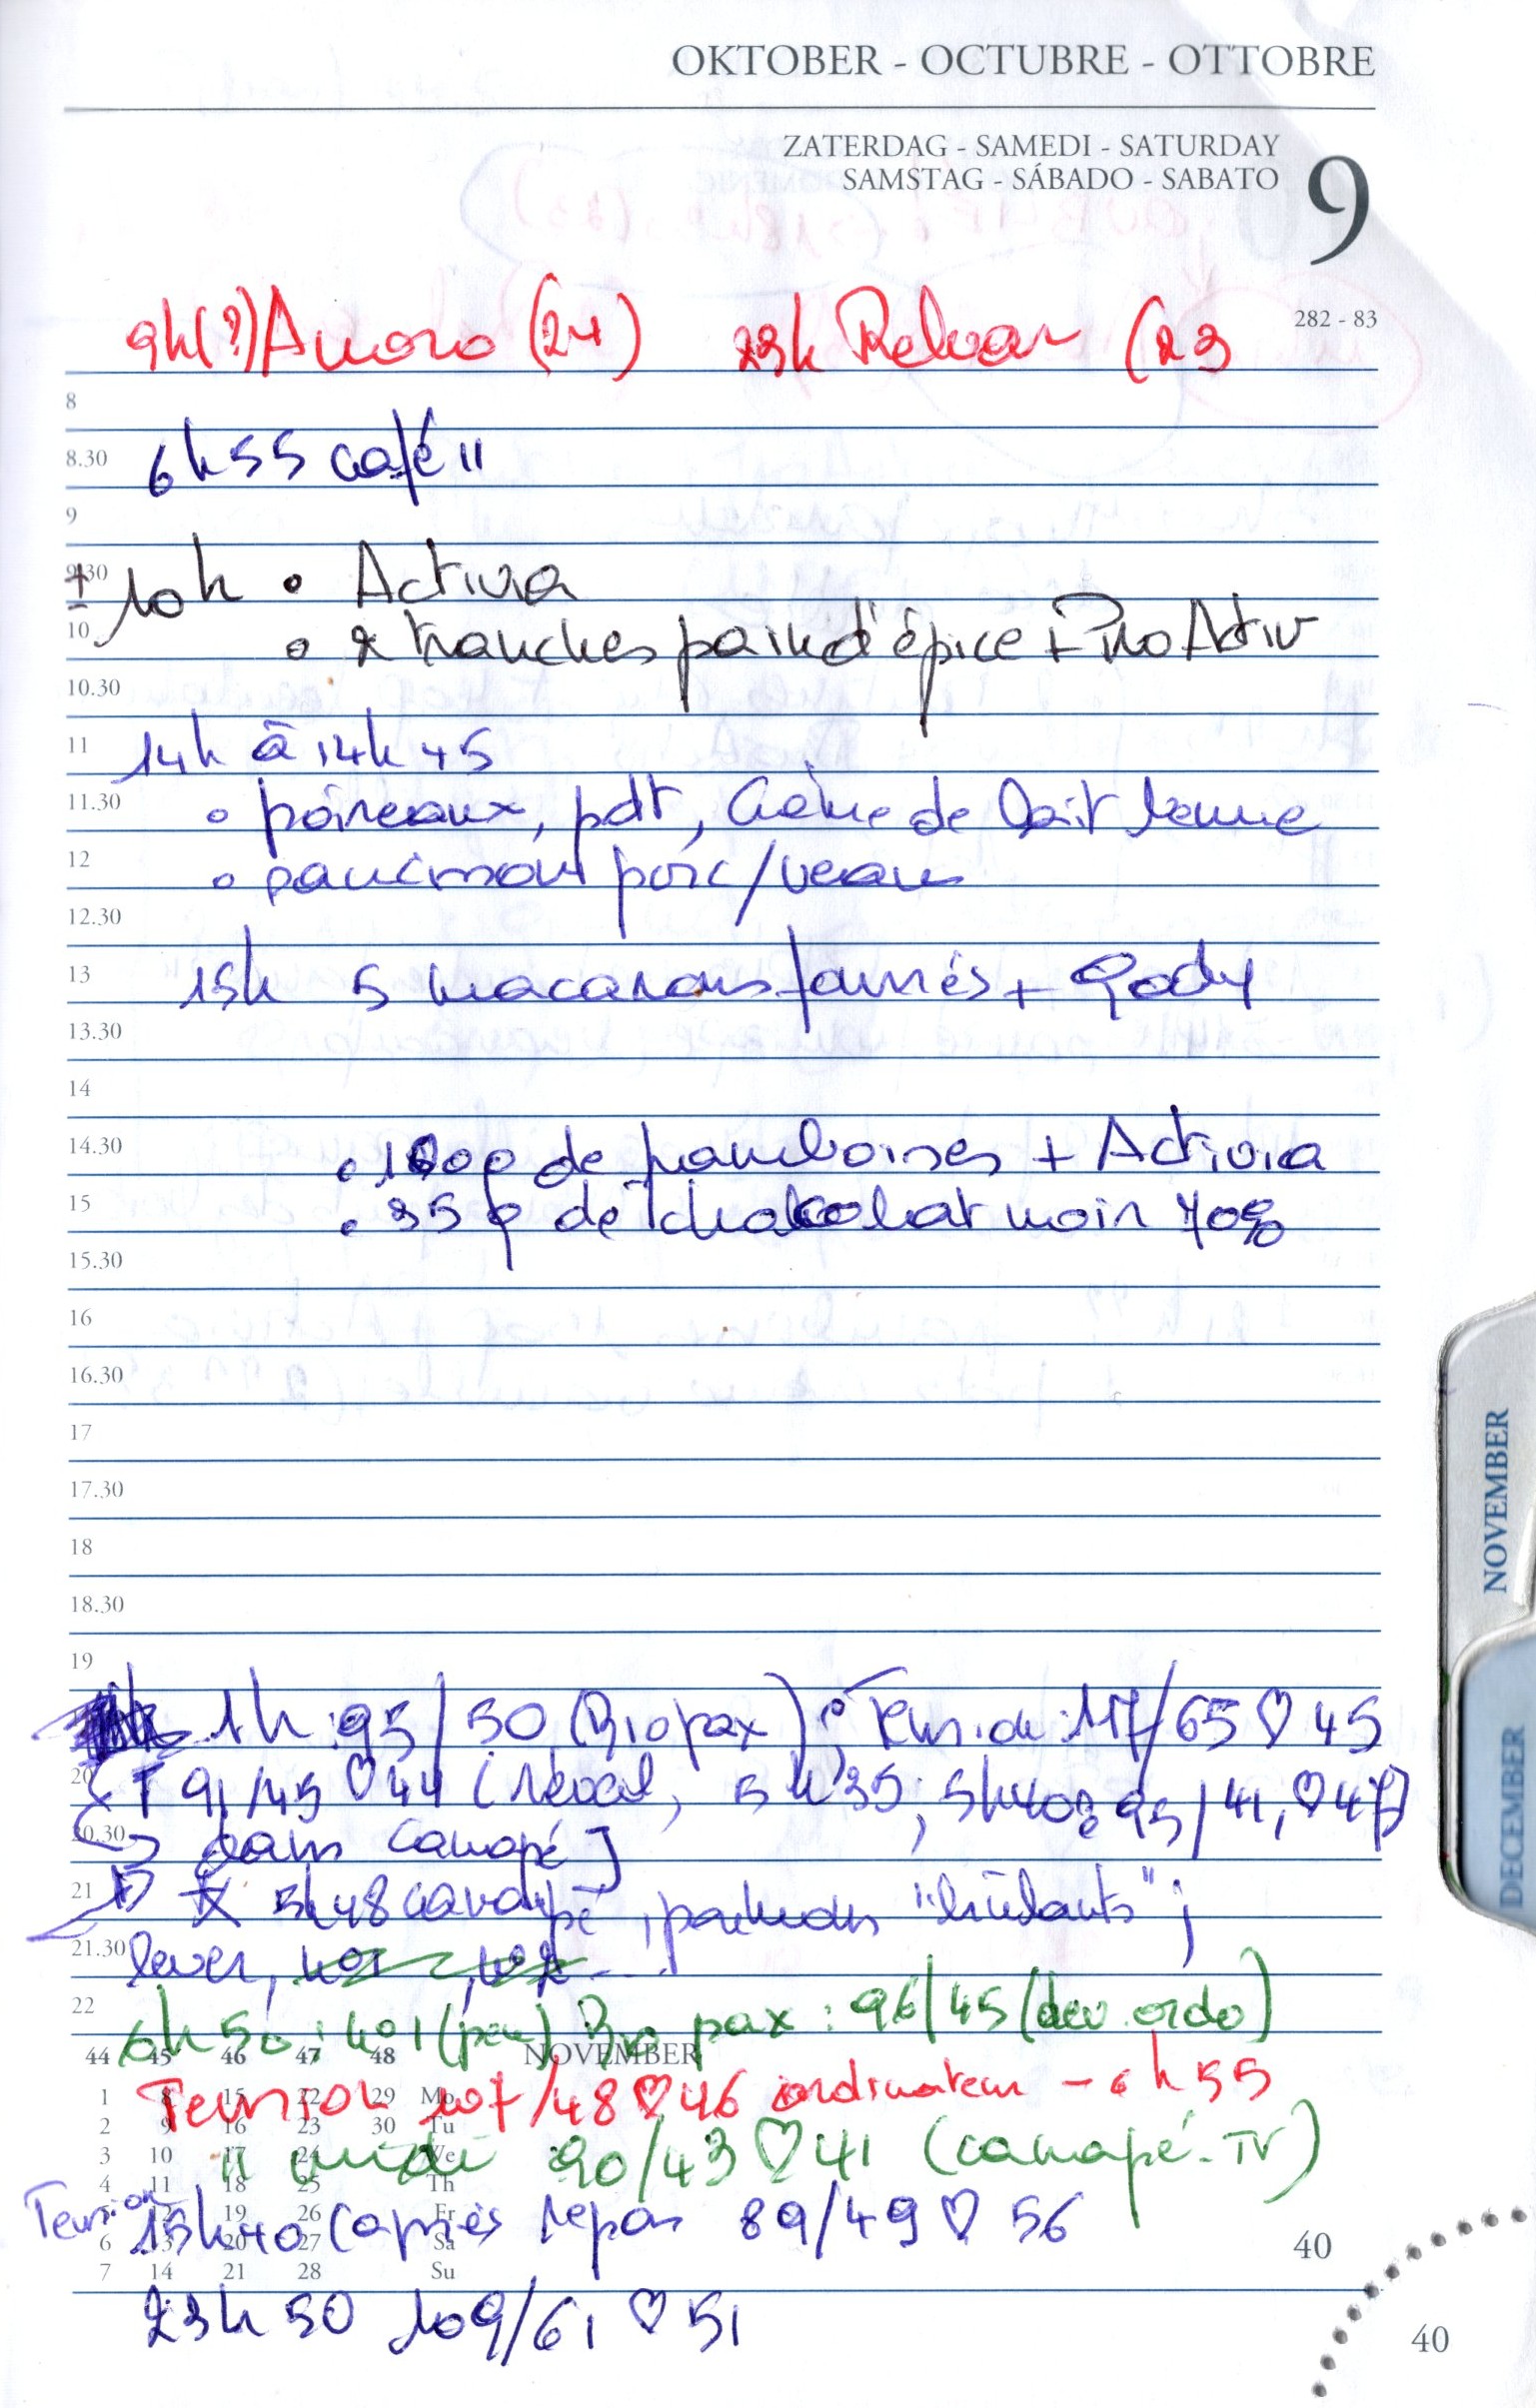 OKTOBER - OCTUBRE - OTTOBRE
ZATERDAG - SAMEDI - SATURDAY
SAMSTAG - SÁBADO - SABATO
9
282 - 83
9h(?) Anoro (24) 23h Relvar (23
8
8.30 6h55 café II
9
9.30 ± 10h • Activa
10 • 2 tranches pain d'épice + ProActiv
10.30
11 14h à 14h45
11.30 • poireaux, pdt, Crème de lait
12 • porc/veau
12.30
13 15h 5 macarons fourrés +
13.30
14
14.30 • 100g de framboises + Activia
15 • 35 g de chocolat noir 70%
15.30
16
16.30
17
17.30
18
18.30
19
1h : 95/50 (Biopax) ; Tension : 117/65 ♡ 45
20 T 91/45 ♡ 44 (Réveil, 5h35 ; 5h40 : 95/41, ♡ 47)
20.30 dans Canapé]
21 5h48 canapé, "brûlants" ;
21.30 lever,
22 6h50 : 401 (peu) Bio pax : 96/45 (dev. ordo)
44 45 46 47 48 NOVEMBER
1 8 15 22 29 Mo
Tension 107/48 ♡ 46 ordinateur - 6h55
2 9 16 23 30 Tu
3 10 17 24 We
" midi 90/43 ♡ 41 (canapé-TV)
4 11 18 25 Th
5 12 19 26 Fr
Tension 15h40 (après repas 89/49 ♡ 56
6 13 20 27 Sa
40
7 14 21 28 Su
23h50 109/61 ♡ 51
40
NOVEMBER
DECEMBER